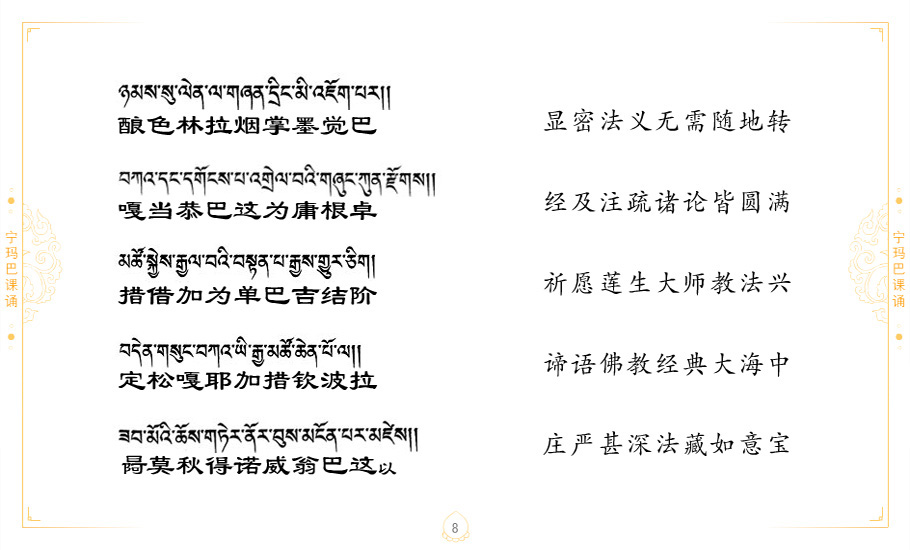 ཉམས་སུ་ལེན་ལ་གཞན་དྲིང་མི་འཇོག་པར།།
酿色林拉烟掌墨觉巴
显密法义无需随地转
བཀའ་དང་དགོངས་པ་འགྲེལ་བའི་གཞུང་ཀུན་རྫོགས།།
嘎当恭巴这为庸根卓
经及注疏诸论皆圆满
མཚོ་སྐྱེས་རྒྱལ་བའི་བསྟན་པ་རྒྱས་གྱུར་ཅིག།
措借加为单巴吉结阶
祈愿莲生大师教法兴
བདེན་གསུང་བཀའ་ཡི་རྒྱ་མཚོ་ཆེན་པོ་ལ།།
定松嘎耶加措钦波拉
谛语佛教经典大海中
ཟབ་མོའི་ཆོས་གཏེར་ནོར་བུས་མངོན་པར་མཛེས།།
莫秋得诺威翁巴这以
庄严甚深法藏如意宝
宁玛巴课诵
宁玛巴课诵
8